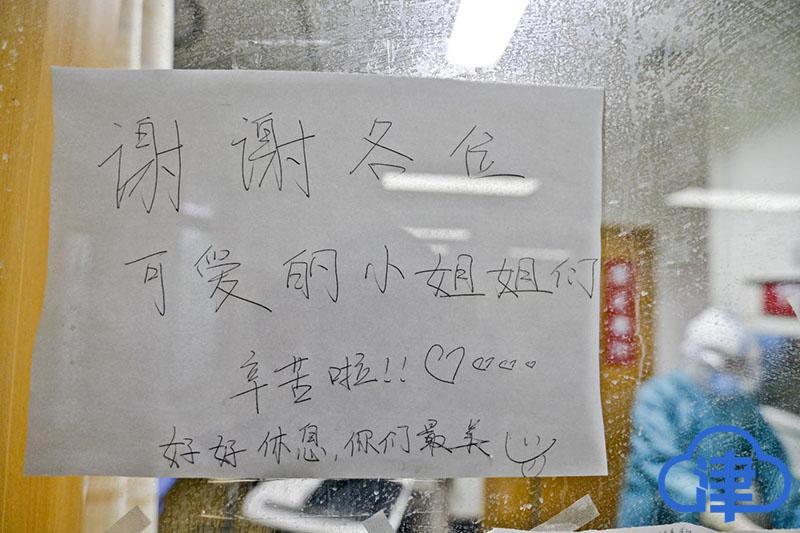 谢谢各位
可爱的小姐姐们
辛苦啦!!♡♡♡♡♡
好好休息,你们最美
津